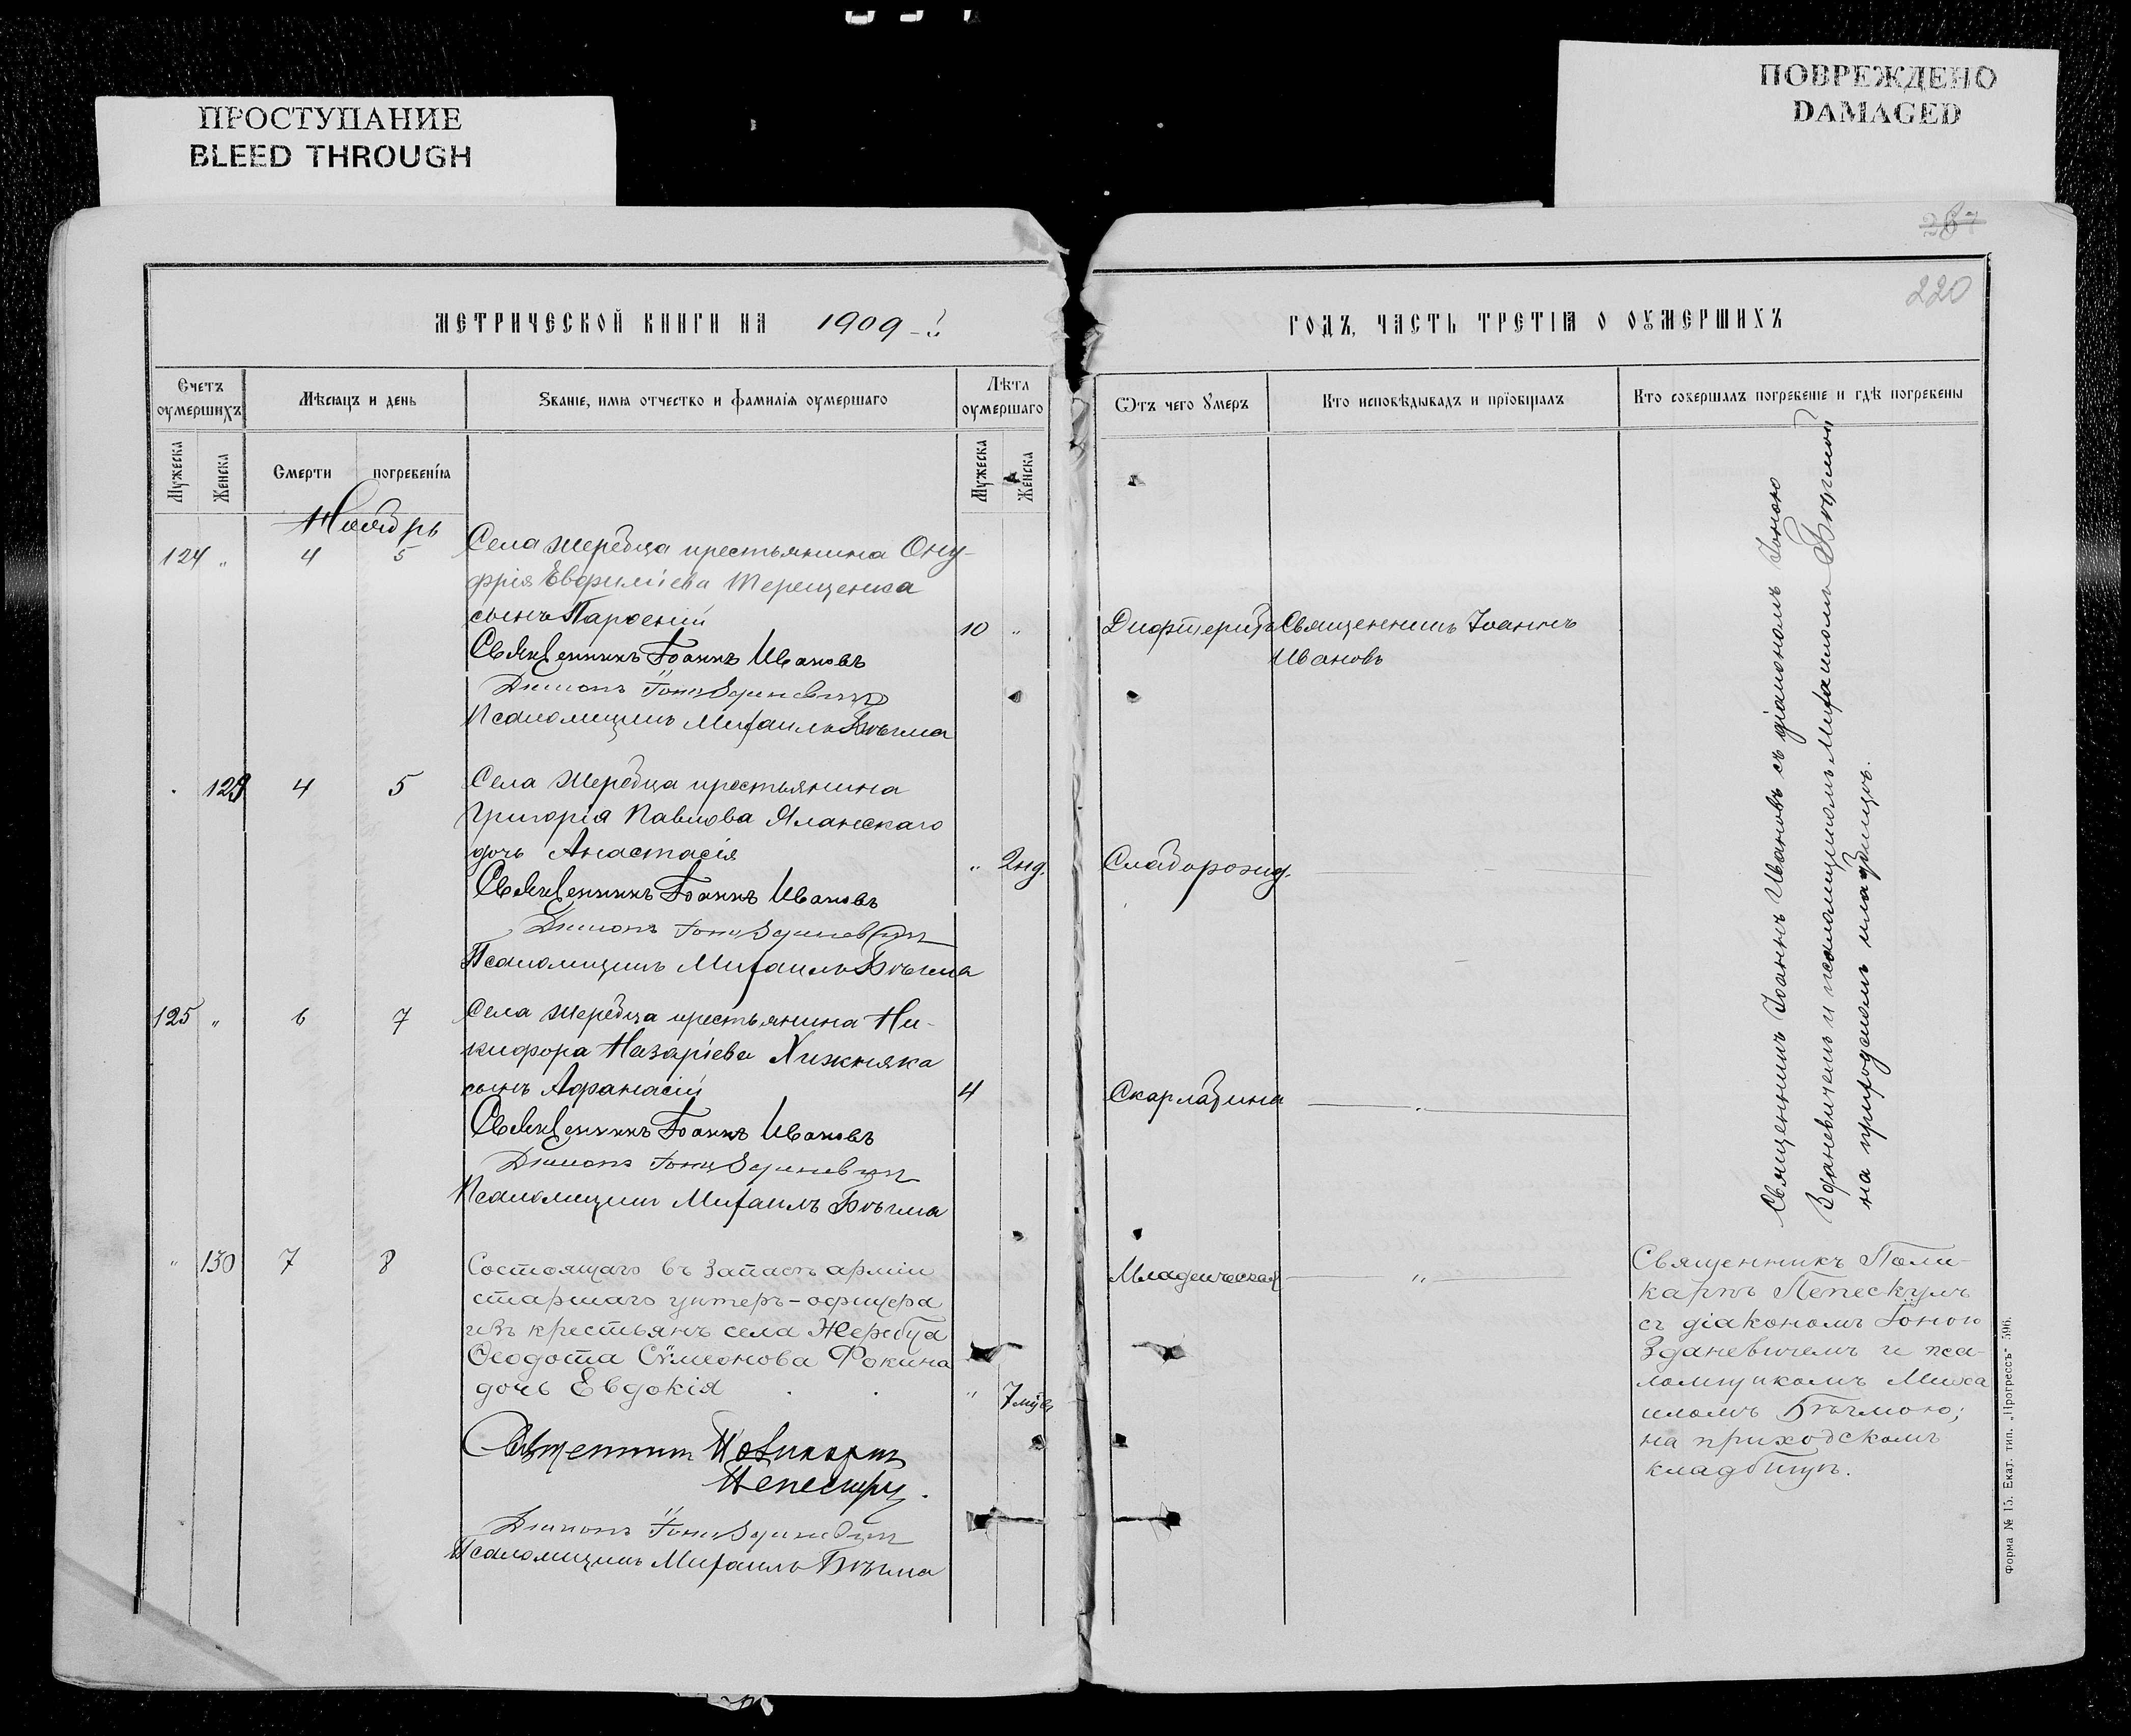 ПРОСТУПАНИЕ
BLEED THROUGH
ПОВРЕЖДЕНО
DAMAGED
220
МЕТРИЧЕСКОЙ КНИГИ НА 1909
ГОДЪ, ЧАСТЬ ТРЕТІѦ О ОУМЕРШИХЪ
Счетъ оумершихъ
Мѣсяцъ и день
Званіе, имя отчество и фамилія оумершаго
Лѣта оумершаго
Ѿтъ чего Умеръ
Кто исповѣдывалъ и пріобщалъ
Кто совершалъ погребеніе и гдѣ погребены
Мужеска
Женска
Смерти
погребенія
Мужеска
Женска
Ноябрь
124 „ 4 5 Села Жеребца крестьянина Ону-
фрія Евфиміева Терещенка
сынъ Парѳеній 10 „ Дифтеритъ Священникъ Іоаннъ
Ивановъ
Священникъ Іоаннъ Ивановъ
Діаконъ Іона Зданевичъ
Псаломщикъ Михаилъ Бѣгма
129 4 5 Села Жеребца крестьянина
Григорія Павлова Яланскаго
дочь Анастасія „ 2 нд. Слаборожд.
Священникъ Іоаннъ Ивановъ
Діаконъ Іона Зданевичъ
Псаломщикъ Михаилъ Бѣгма
125 „ 6 7 Села Жеребца крестьянина Ни-
кифора Назаріева Хижняка
сынъ Афанасій 4 Скарлатина
Священникъ Іоаннъ Ивановъ
Діаконъ Іона Зданевичъ
Псаломщикъ Михаилъ Бѣгма
Священникъ Іоаннъ Ивановъ съ діакономъ Іоною
Зданевичемъ и псаломщикомъ Михаиломъ Бѣгмой
на приходскомъ кладбищѣ.
„ 130 7 8 Состоящаго въ запасѣ арміи
старшаго унтеръ-офицера
изъ крестьянъ села Жеребца
Ѳеодота Сѵмеонова Фокина
дочь Евдокія „ 7 мѣс. Младенческая „
Священникъ Поликарпъ
Пепескулъ.
Діаконъ Іона Зданевичъ
Псаломщикъ Михаилъ Бѣгма
Священникъ Поли-
карпъ Пепескулъ
съ діакономъ Іоною
Зданевичемъ и пса-
ломщикомъ Миха
иломъ Бѣгмою;
на приходскомъ
кладбищѣ.
Форма № 15. Екат. тип. „Прогрессъ" 596.